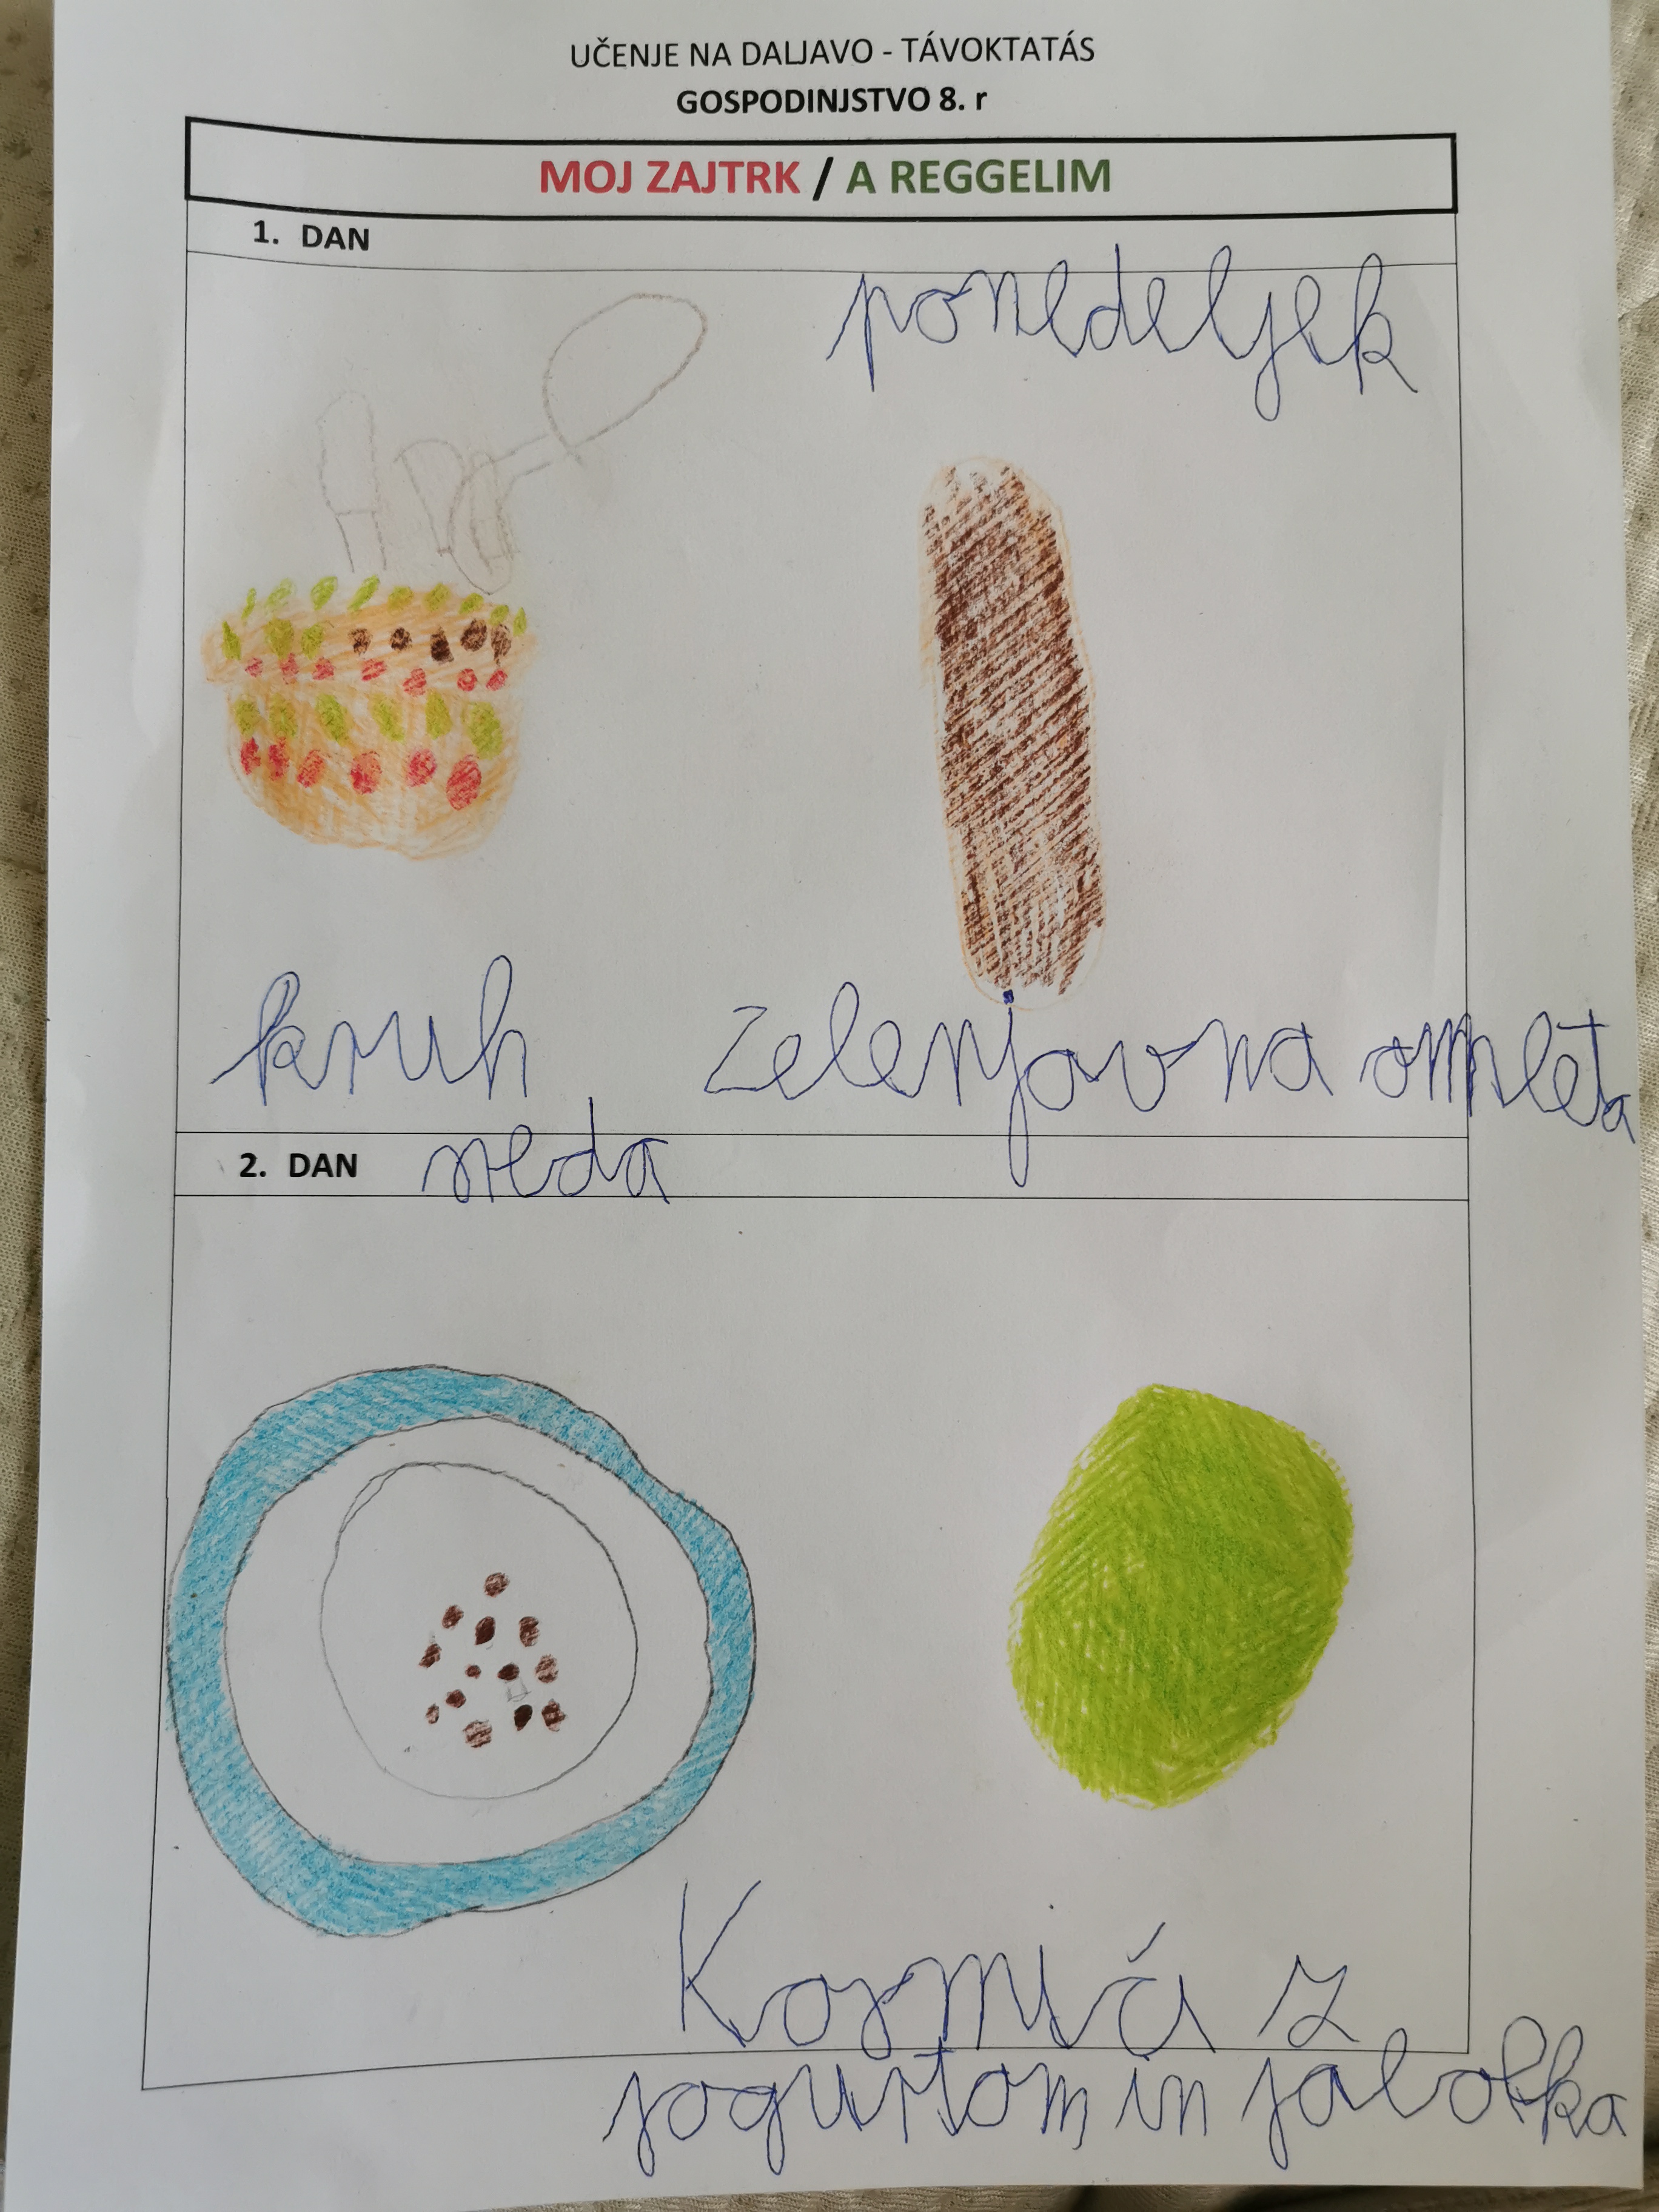 UČENJE NA DALJAVO - TÁVOKTATÁS
GOSPODINJSTVO 8. r
MOJ ZAJTRK / A REGGELIM
1. DAN
ponedeljek
kruh zelenjavna omleta
2. DAN sreda
Kosmiči z
jogurtom in jabolka